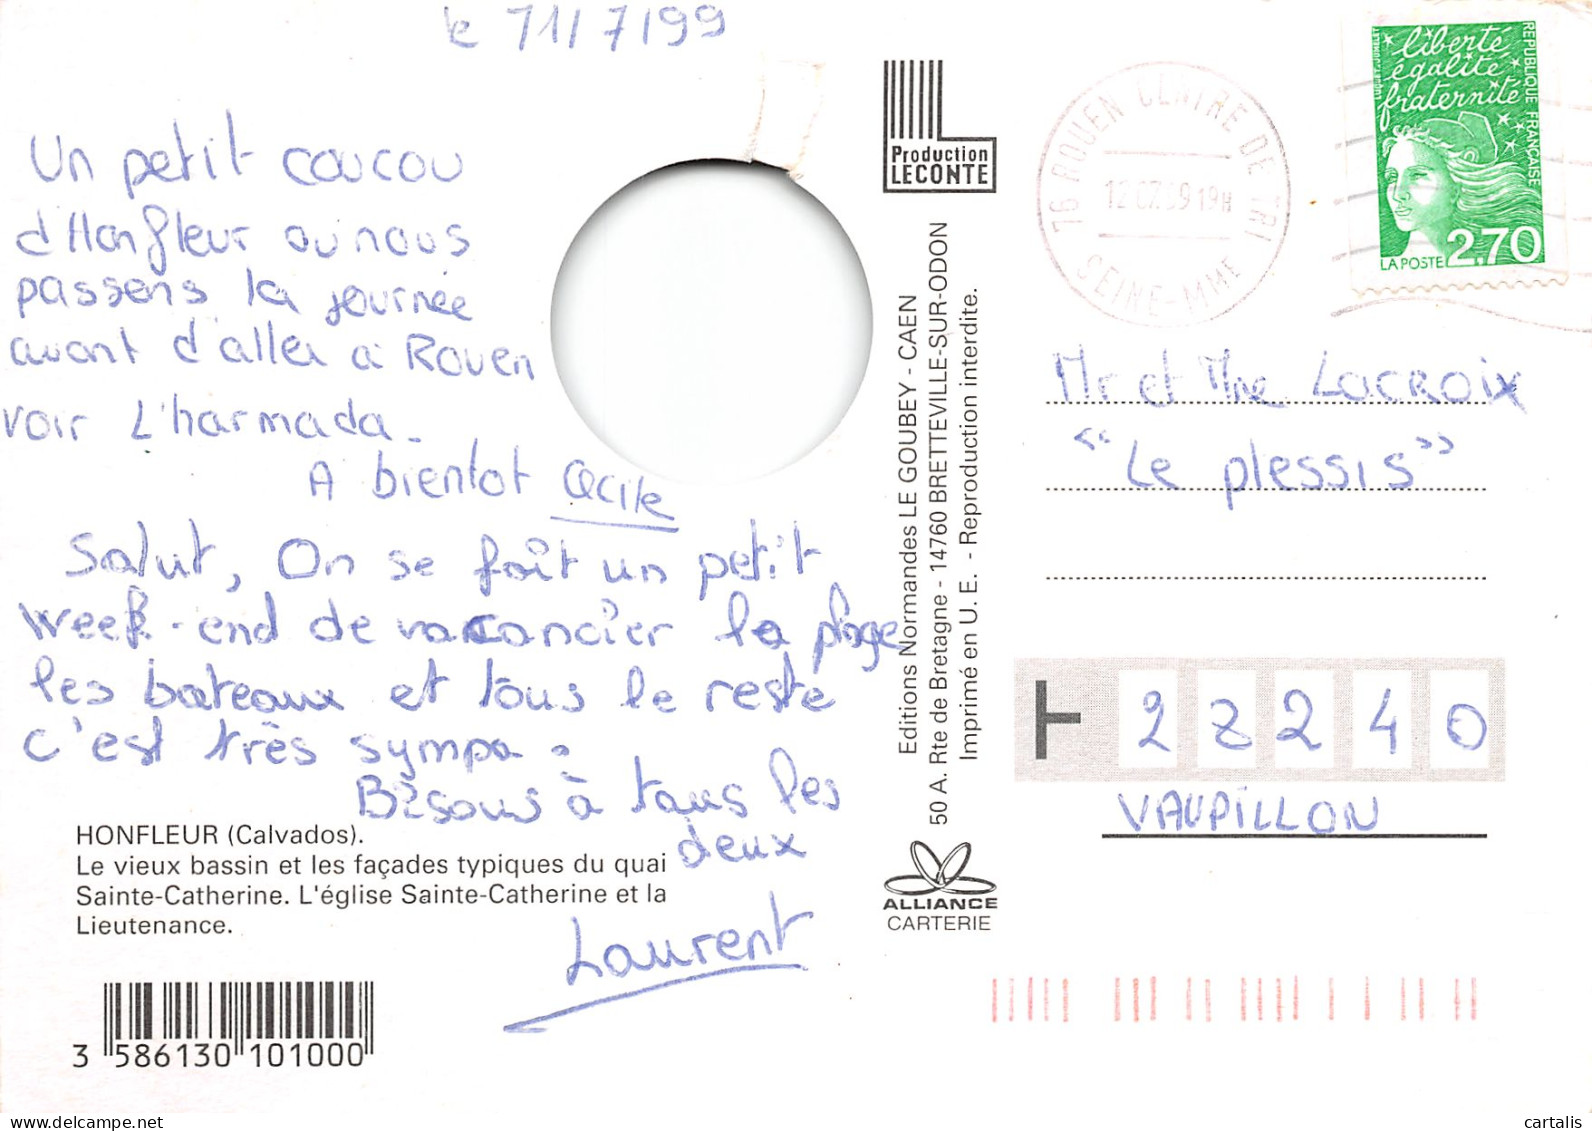 le 11/7/99
Un petit coucou
d'Honfleur ou nous
passons la journée
avant d'aller à Rouen
voir L'harmada.
A bientot Cécile
Salut, On se fait un petit
week-end de vacancier la plage
les bateaux et tous le reste
c'est très sympa.
Bisous à tous les
deux
Laurent
HONFLEUR (Calvados).
Le vieux bassin et les façades typiques du quai
Sainte-Catherine. L'église Sainte-Catherine et la
Lieutenance.
3 586130 101000
Production
LECONTE
Editions Normandes LE GOUBEY - CAEN
50 A. Rte de Bretagne - 14760 BRETTEVILLE-SUR-ODON
Imprimé en U. E. - Reproduction interdite.
ALLIANCE
CARTERIE
76 ROUEN CENTRE DE TRI
12 07 99 19H
SEINE-MME
liberté
égalité
fraternité
REPUBLIQUE FRANÇAISE
LA POSTE 2,70
Mr et Mme LACROIX
"Le plessis"
28240
VAUPILLON
www.delcampe.net
cartalis